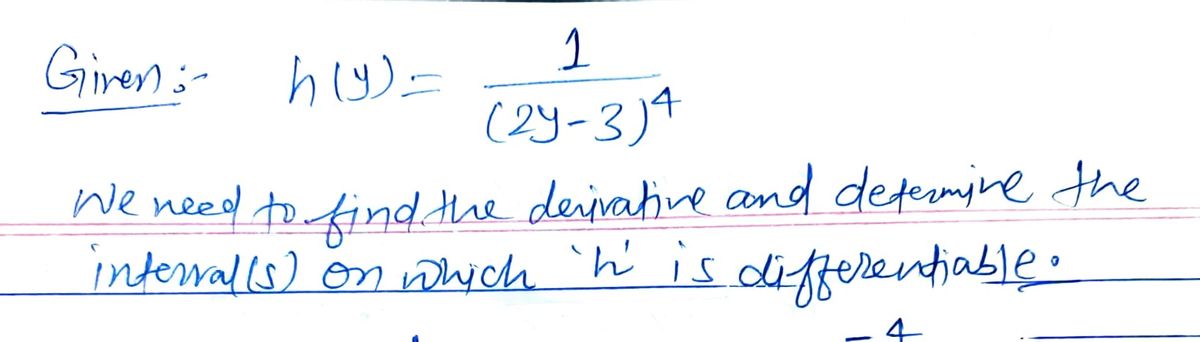 Given :- h(y) = 1/(2y-3)^4
We need to find the derivative and determine the
interval(s) on which 'h' is differentiable.
-4